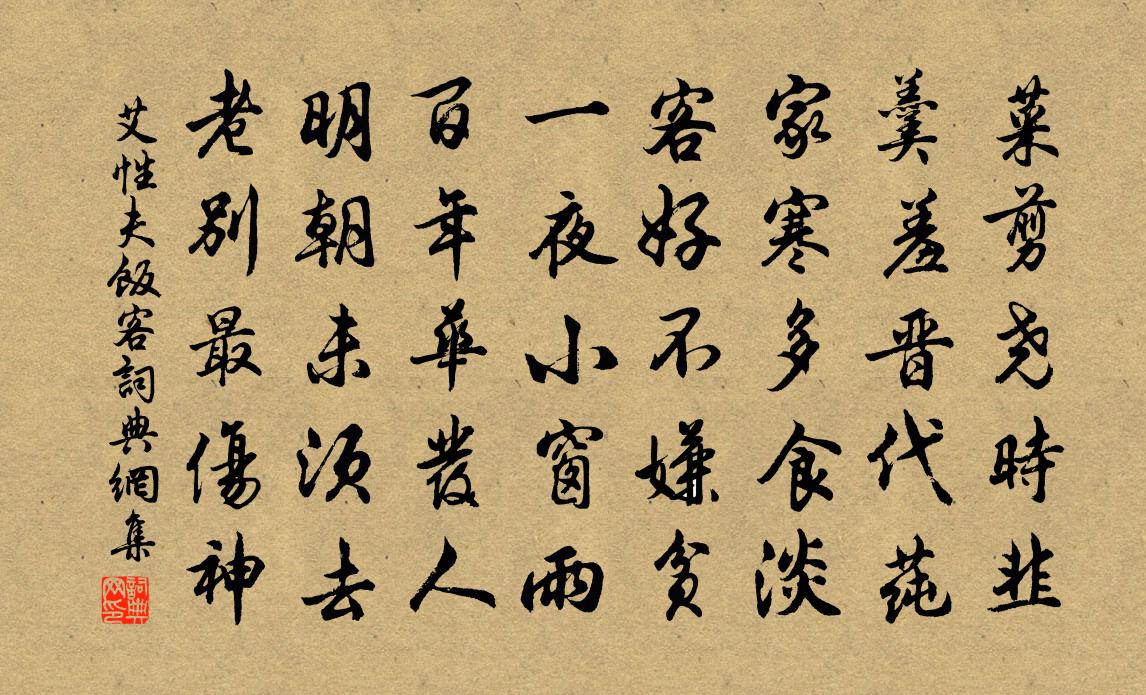 菜剪尧時韭
羹羞晋代莼
家寒多食淡
客好不嫌貧
一夜小窗雨
百年華發人
明朝未須去
老別最傷神
艾性夫飯客詞典網集
詞典网印